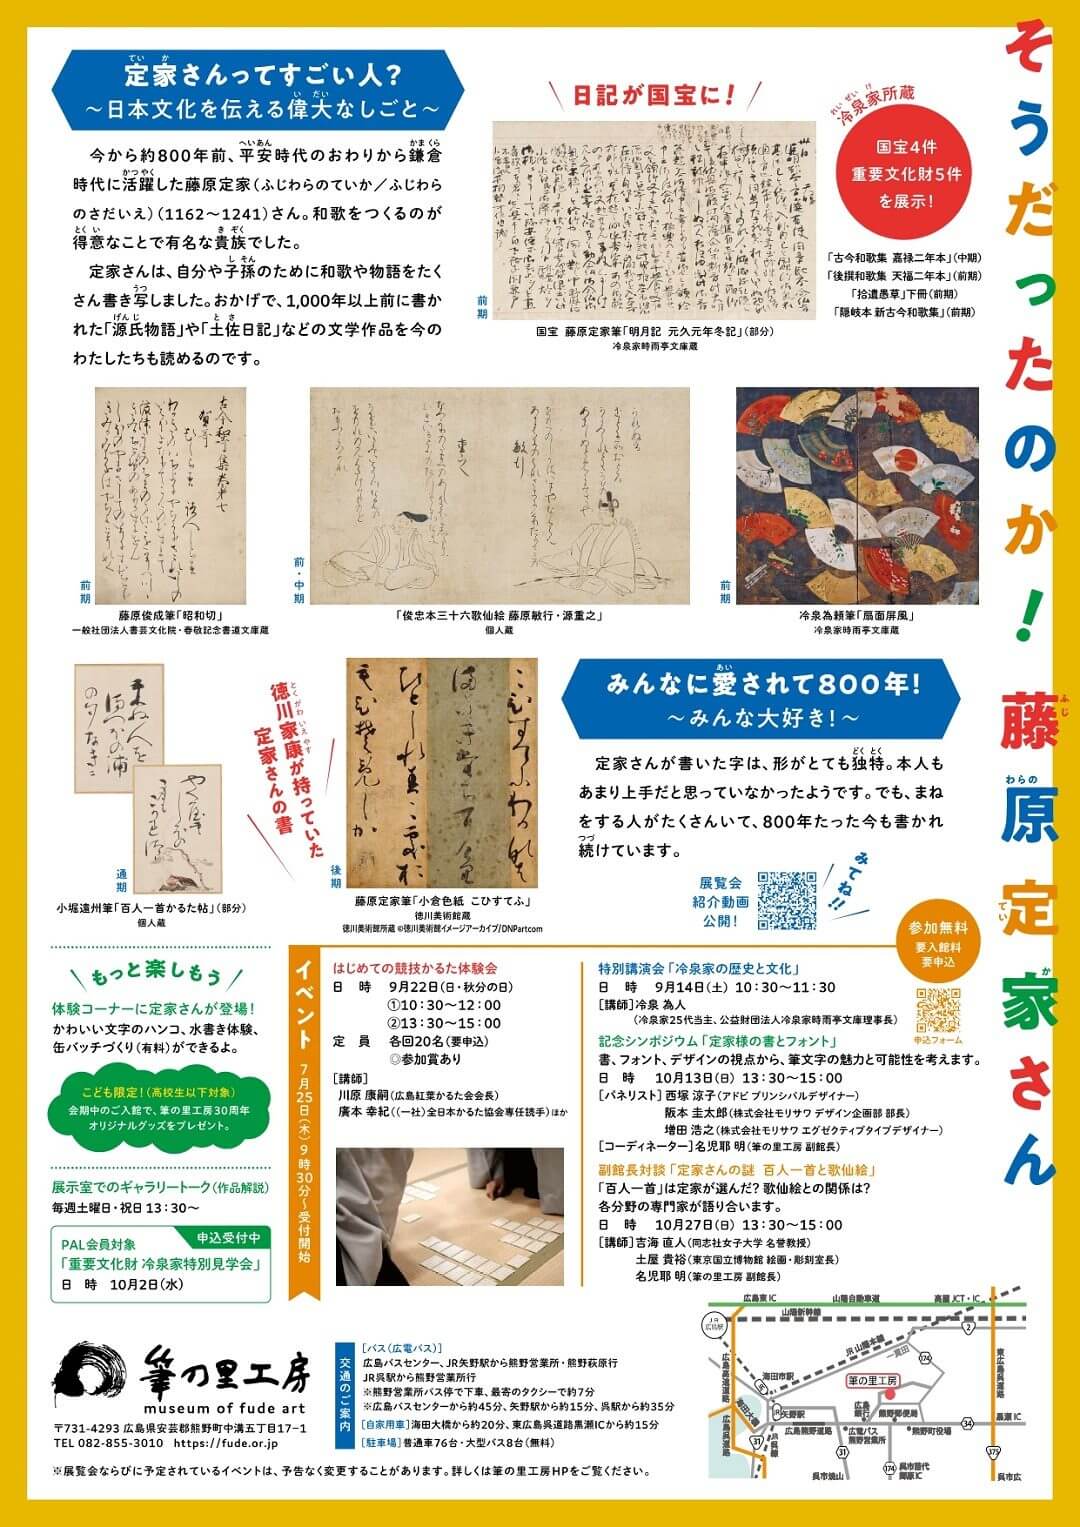 そうだったのか！藤原定家さん
ふじ
わらの
てい
か
定家さんってすごい人？
てい か
～日本文化を伝える偉大なしごと～
い だい
今から約800年前、平安時代のおわりから鎌倉
時代に活躍した藤原定家（ふじわらのていか／ふじわら
のさだいえ）（1162～1241）さん。和歌をつくるのが
得意なことで有名な貴族でした。
定家さんは、自分や子孫のために和歌や物語をたく
さん書き写しました。おかげで、1,000年以上前に書か
れた「源氏物語」や「土佐日記」などの文学作品を今の
わたしたちも読めるのです。
日記が国宝に！
前期
国宝 藤原定家筆「明月記 元久元年冬記」（部分）
冷泉家時雨亭文庫蔵
れいぜいけ
冷泉家所蔵
国宝4件
重要文化財5件
を展示！
「古今和歌集 嘉禄二年本」（中期）
「後撰和歌集 天福二年本」（前期）
「拾遺愚草」下冊（前期）
「隠岐本 新古今和歌集」（前期）
前期
藤原俊成筆「昭和切」
一般社団法人書芸文化院・春敬記念書道文庫蔵
前・中期
「俊忠本三十六歌仙絵 藤原敏行・源重之」
個人蔵
前期
冷泉為頼筆「扇面屏風」
冷泉家時雨亭文庫蔵
通期
小堀遠州筆「百人一首かるた帖」（部分）
個人蔵
とくがわいえやす
徳川家康が持っていた
定家さんの書
後期
藤原定家筆「小倉色紙 こひすてふ」
徳川美術館蔵
徳川美術館所蔵 ©徳川美術館イメージアーカイブ/DNPartcom
みんなに愛されて800年！
あい
～みんな大好き！～
定家さんが書いた字は、形がとても独特。本人も
あまり上手だと思っていなかったようです。でも、まね
をする人がたくさんいて、800年たった今も書かれ
続けています。
展覧会
紹介動画
公開！
みてね!!
もっと楽しもう
体験コーナーに定家さんが登場！
かわいい文字のハンコ、水書き体験、
缶バッチづくり（有料）ができるよ。
こども限定！（高校生以下対象）
会期中のご入館で、筆の里工房30周年
オリジナルグッズをプレゼント。
展示室でのギャラリートーク（作品解説）
毎週土曜日・祝日 13：30～
申込受付中
PAL会員対象
「重要文化財 冷泉家特別見学会」
日 時 10月2日（水）
イベント 7月25日（木）9時30分～受付開始
はじめての競技かるた体験会
日 時 9月22日（日・秋分の日）
①10：30～12：00
②13：30～15：00
定 員 各回20名（要申込）
◎参加賞あり
［講師］
川原 康嗣（広島紅葉かるた会会長）
廣本 幸紀（（一社）全日本かるた協会専任読手）ほか
参加無料
要入館料
要申込
申込フォーム
特別講演会「冷泉家の歴史と文化」
日 時 9月14日（土） 10：30～11：30
［講師］冷泉 為人
（冷泉家25代当主、公益財団法人冷泉家時雨亭文庫理事長）
記念シンポジウム「定家様の書とフォント」
書、フォント、デザインの視点から、筆文字の魅力と可能性を考えます。
日 時 10月13日（日） 13：30～15：00
［パネリスト］西塚 涼子（アドビ プリンシパルデザイナー）
阪本 圭太郎（株式会社モリサワ デザイン企画部 部長）
増田 浩之（株式会社モリサワ エグゼクティブタイプデザイナー）
［コーディネーター］名児耶 明（筆の里工房 副館長）
副館長対談「定家さんの謎 百人一首と歌仙絵」
「百人一首」は定家が選んだ？歌仙絵との関係は？
各分野の専門家が語り合います。
日 時 10月27日（日） 13：30～15：00
［講師］吉海 直人（同志社女子大学 名誉教授）
土屋 貴裕（東京国立博物館 絵画・彫刻室長）
名児耶 明（筆の里工房 副館長）
筆の里工房
museum of fude art
〒731-4293 広島県安芸郡熊野町中溝五丁目17－1
TEL 082-855-3010 https://fude.or.jp
交通のご案内
［バス（広電バス）］
広島バスセンター、JR矢野駅から熊野営業所・熊野萩原行
JR呉駅から熊野営業所行
※熊野営業所バス停で下車、最寄のタクシーで約7分
※広島バスセンターから約45分、矢野駅から約15分、呉駅から約35分
［自家用車］海田大橋から約20分、東広島呉道路黒瀬ICから約15分
［駐車場］普通車76台・大型バス8台（無料）
※展覧会ならびに予定されているイベントは、予告なく変更することがあります。詳しくは筆の里工房HPをご覧ください。
広島東IC
山陽自動車道
高屋JCT・IC
山陽新幹線
JR広島駅
JR山陽本線
一貫田
海田市駅
筆の里工房
矢野駅
JR呉線
海田大橋
広島高速道路
広島呉道路
広島熊野道路
広島銀行
熊野郵便局
広電バス
熊野営業所
熊野町役場
東広島呉道路
黒瀬IC
呉市焼山
呉市苗代
郷原IC
呉市広
2
174
34
31
31
174
375